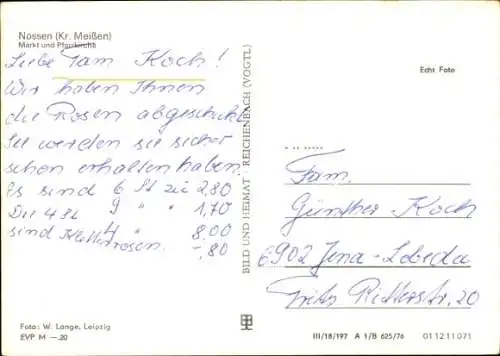 Nossen (Kr. Meißen)
Markt und Pfarrkirche
Liebe Fam Koch!
Wir haben Ihnen
die Rosen abgeschickt
Sie werden sie sicher
schon erhalten haben.
Es sind 6 St zu 2,80
9 " " 1,70
Die 4 St 4 8,00
sind Kletterrosen. -,80
BILD UND HEIMAT · REICHENBACH (VOGTL)
Echt Foto
Fam.
Günther Koch
6902 Jena-Lobeda
Fritz Ritterstr. 20
Foto: W. Lange, Leipzig
EVP M —.20
III/18/197 A 1/B 625/76 011211071